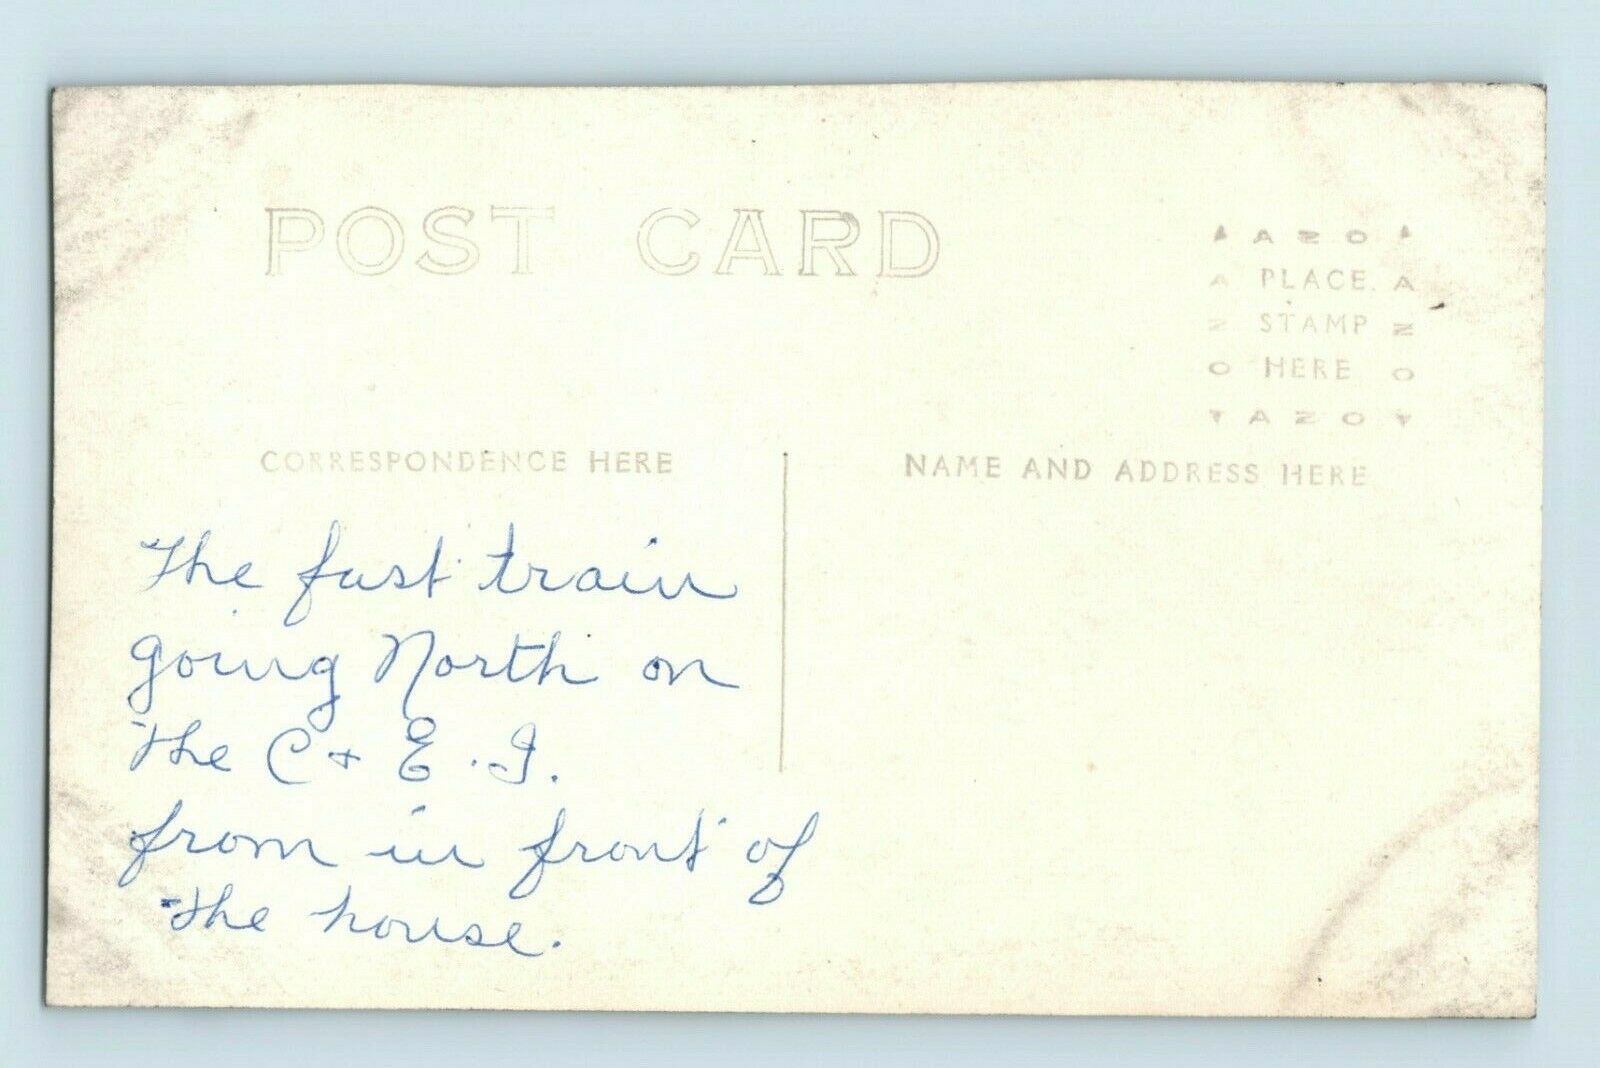 POST CARD
AZO
PLACE
STAMP
HERE
AZO
CORRESPONDENCE HERE
NAME AND ADDRESS HERE
The fast train
going North on
the C & E.I.
from in front of
the house.